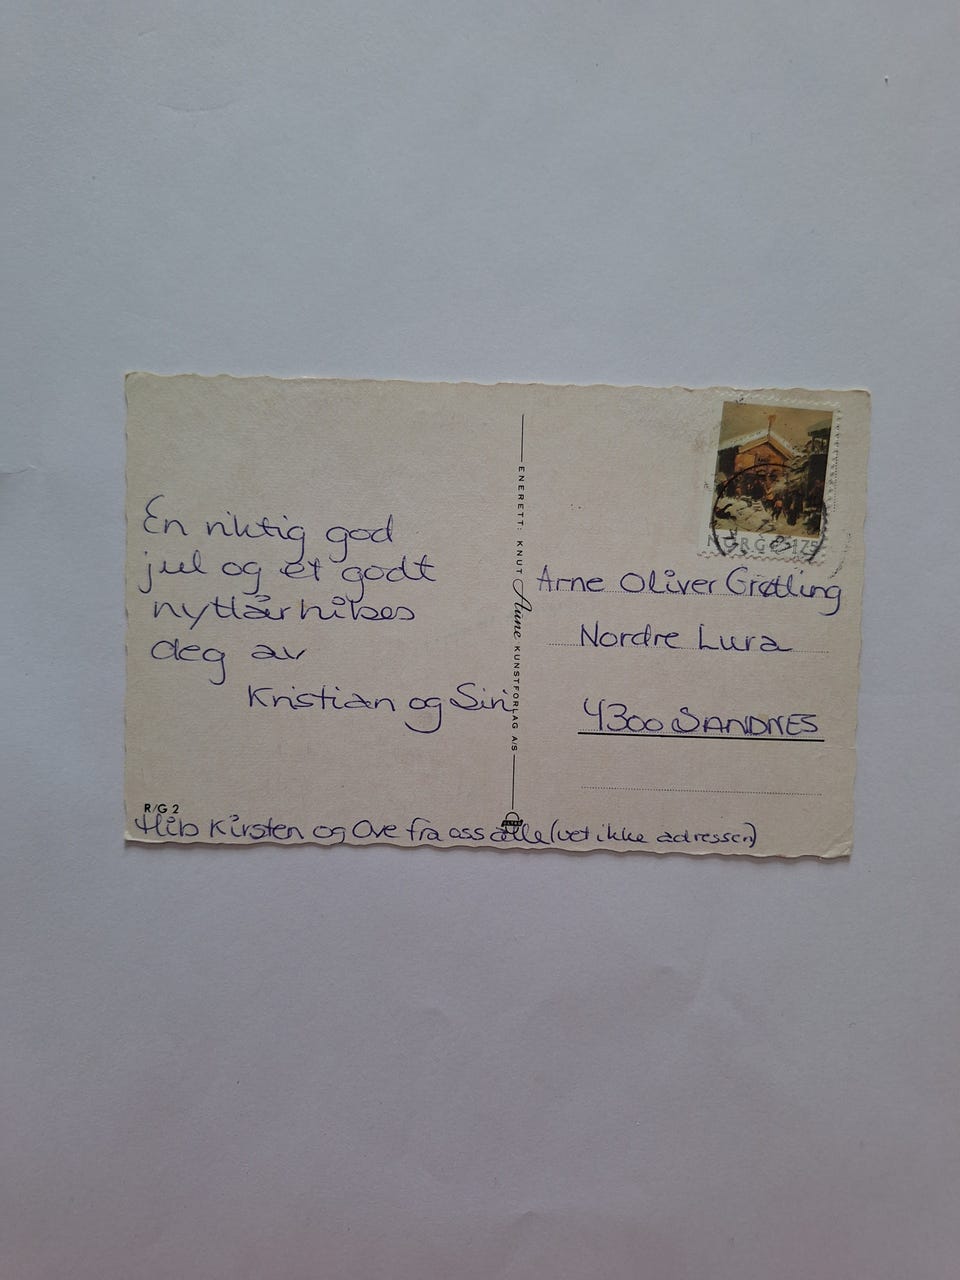 En riktig god
jul og et godt
nyttår hilses
deg av
Kristian og Siri
R/G 2
Hils Kirsten og Ove fra oss alle (vet ikke adressen)
ENERETT: KNUT Aune KUNSTFORLAG A/S
NORGE 175
Arne Oliver Grøtling
Nordre Lura
4300 SANDNES